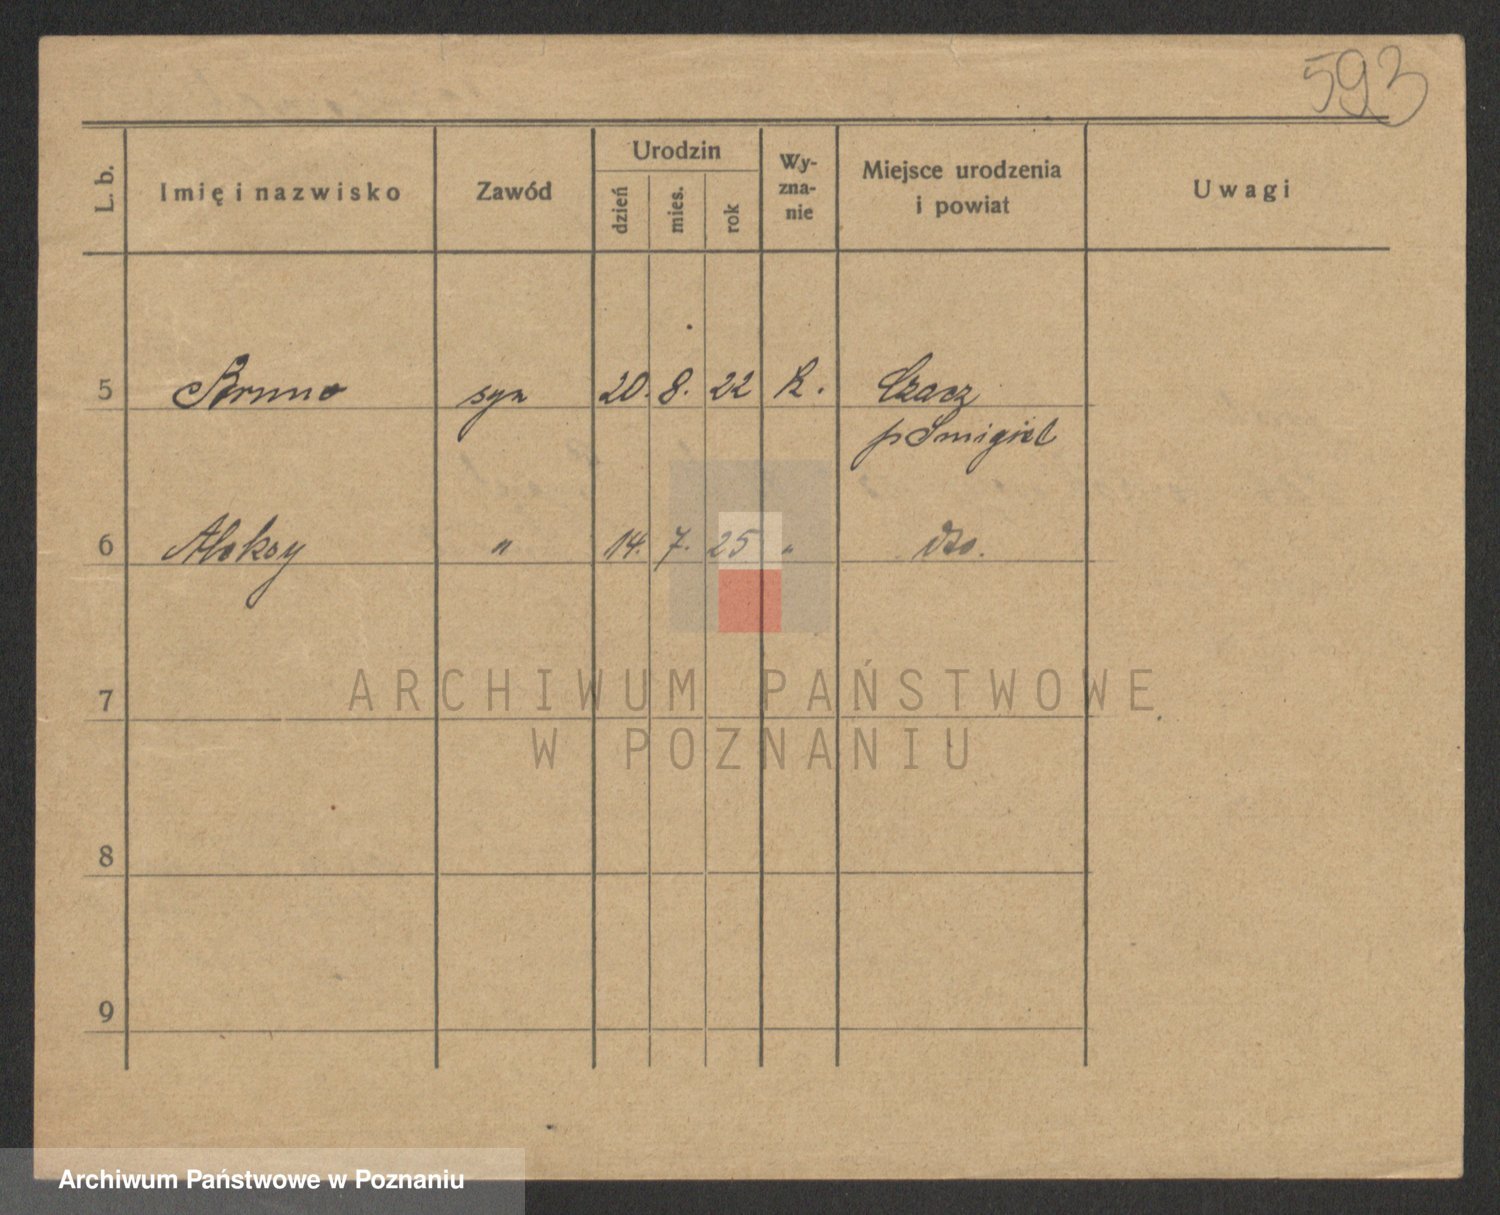 593
L. b. Imię i nazwisko Zawód Urodzin dzień mies. rok Wy-zna-nie Miejsce urodzenia i powiat Uwagi
5 Bruno syn 20. 8. 22 k. Czacz
p Smigiel
6 Aleksy " 14. 7. 25 " dto.
7
ARCHIWUM PAŃSTWOWE
W POZNANIU
8
9
Archiwum Państwowe w Poznaniu